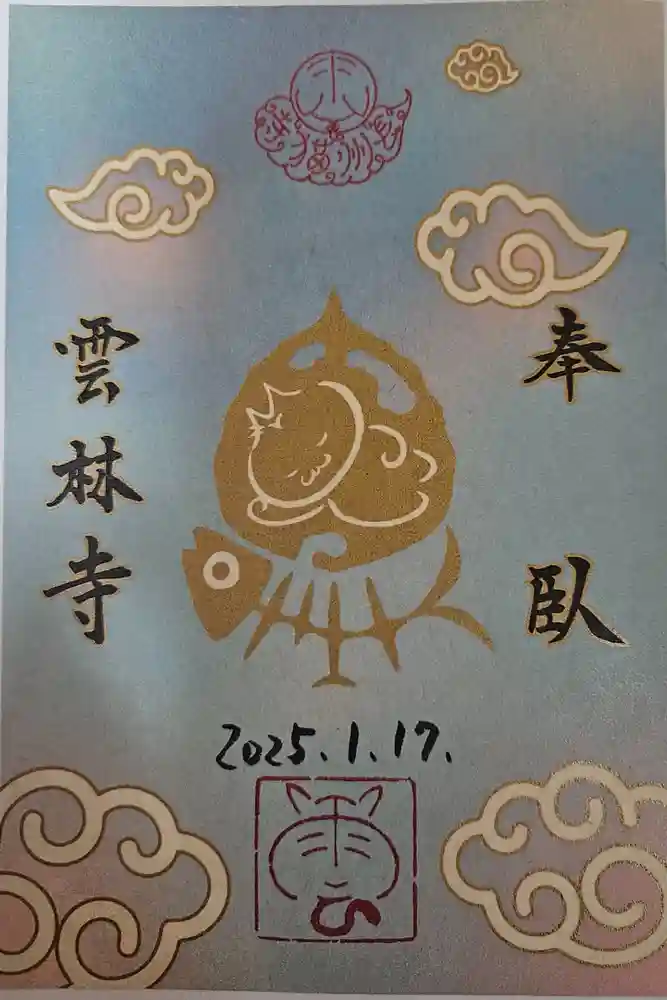 奉
臥
雲林寺
2025.1.17.